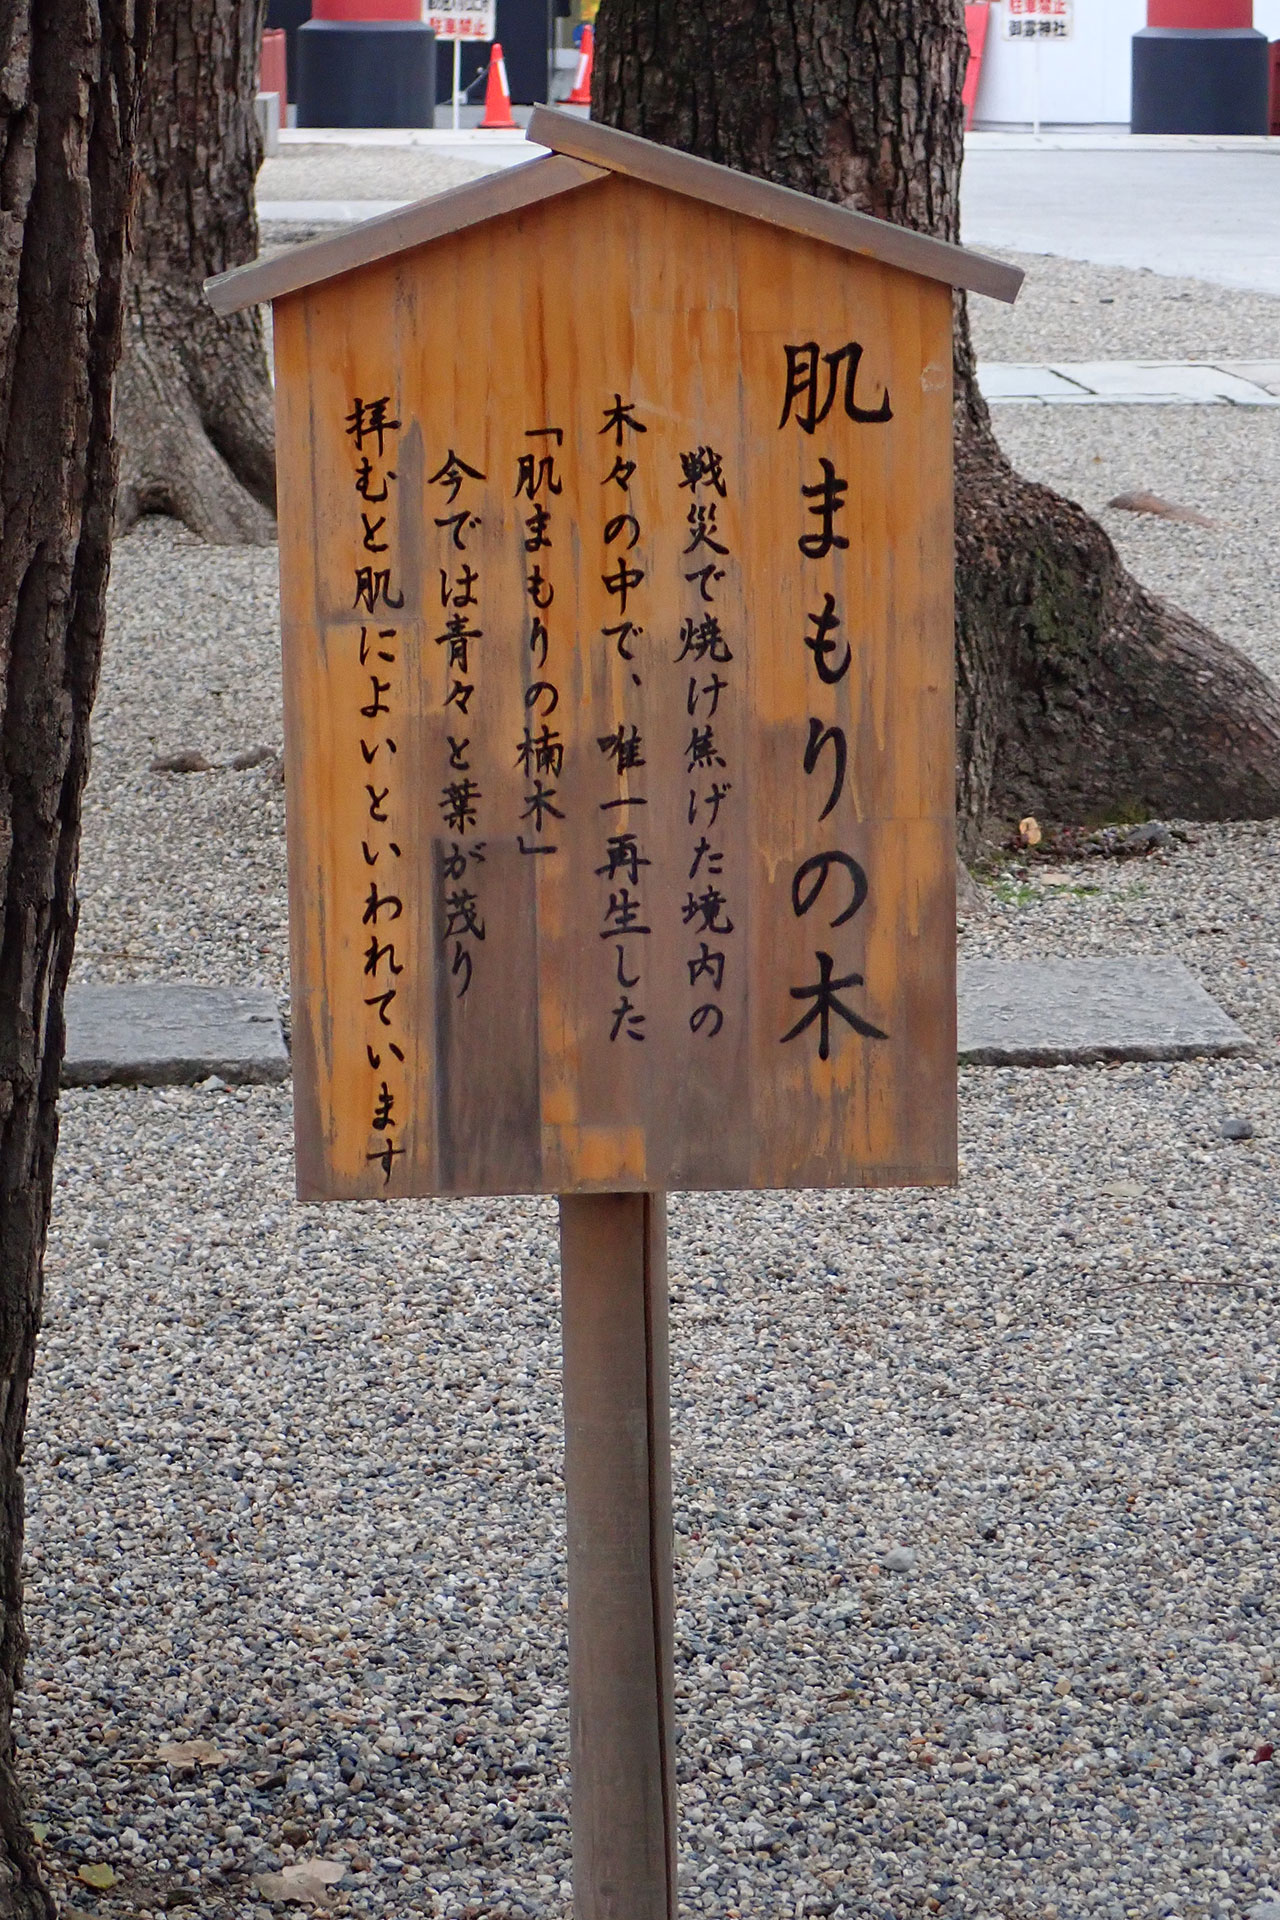 肌まもりの木
戦災で焼け焦げた境内の
木々の中で、唯一再生した
「肌まもりの楠木」
今では青々と葉が茂り
拝むと肌によいといわれています
駐車禁止
駐車禁止
御霊神社